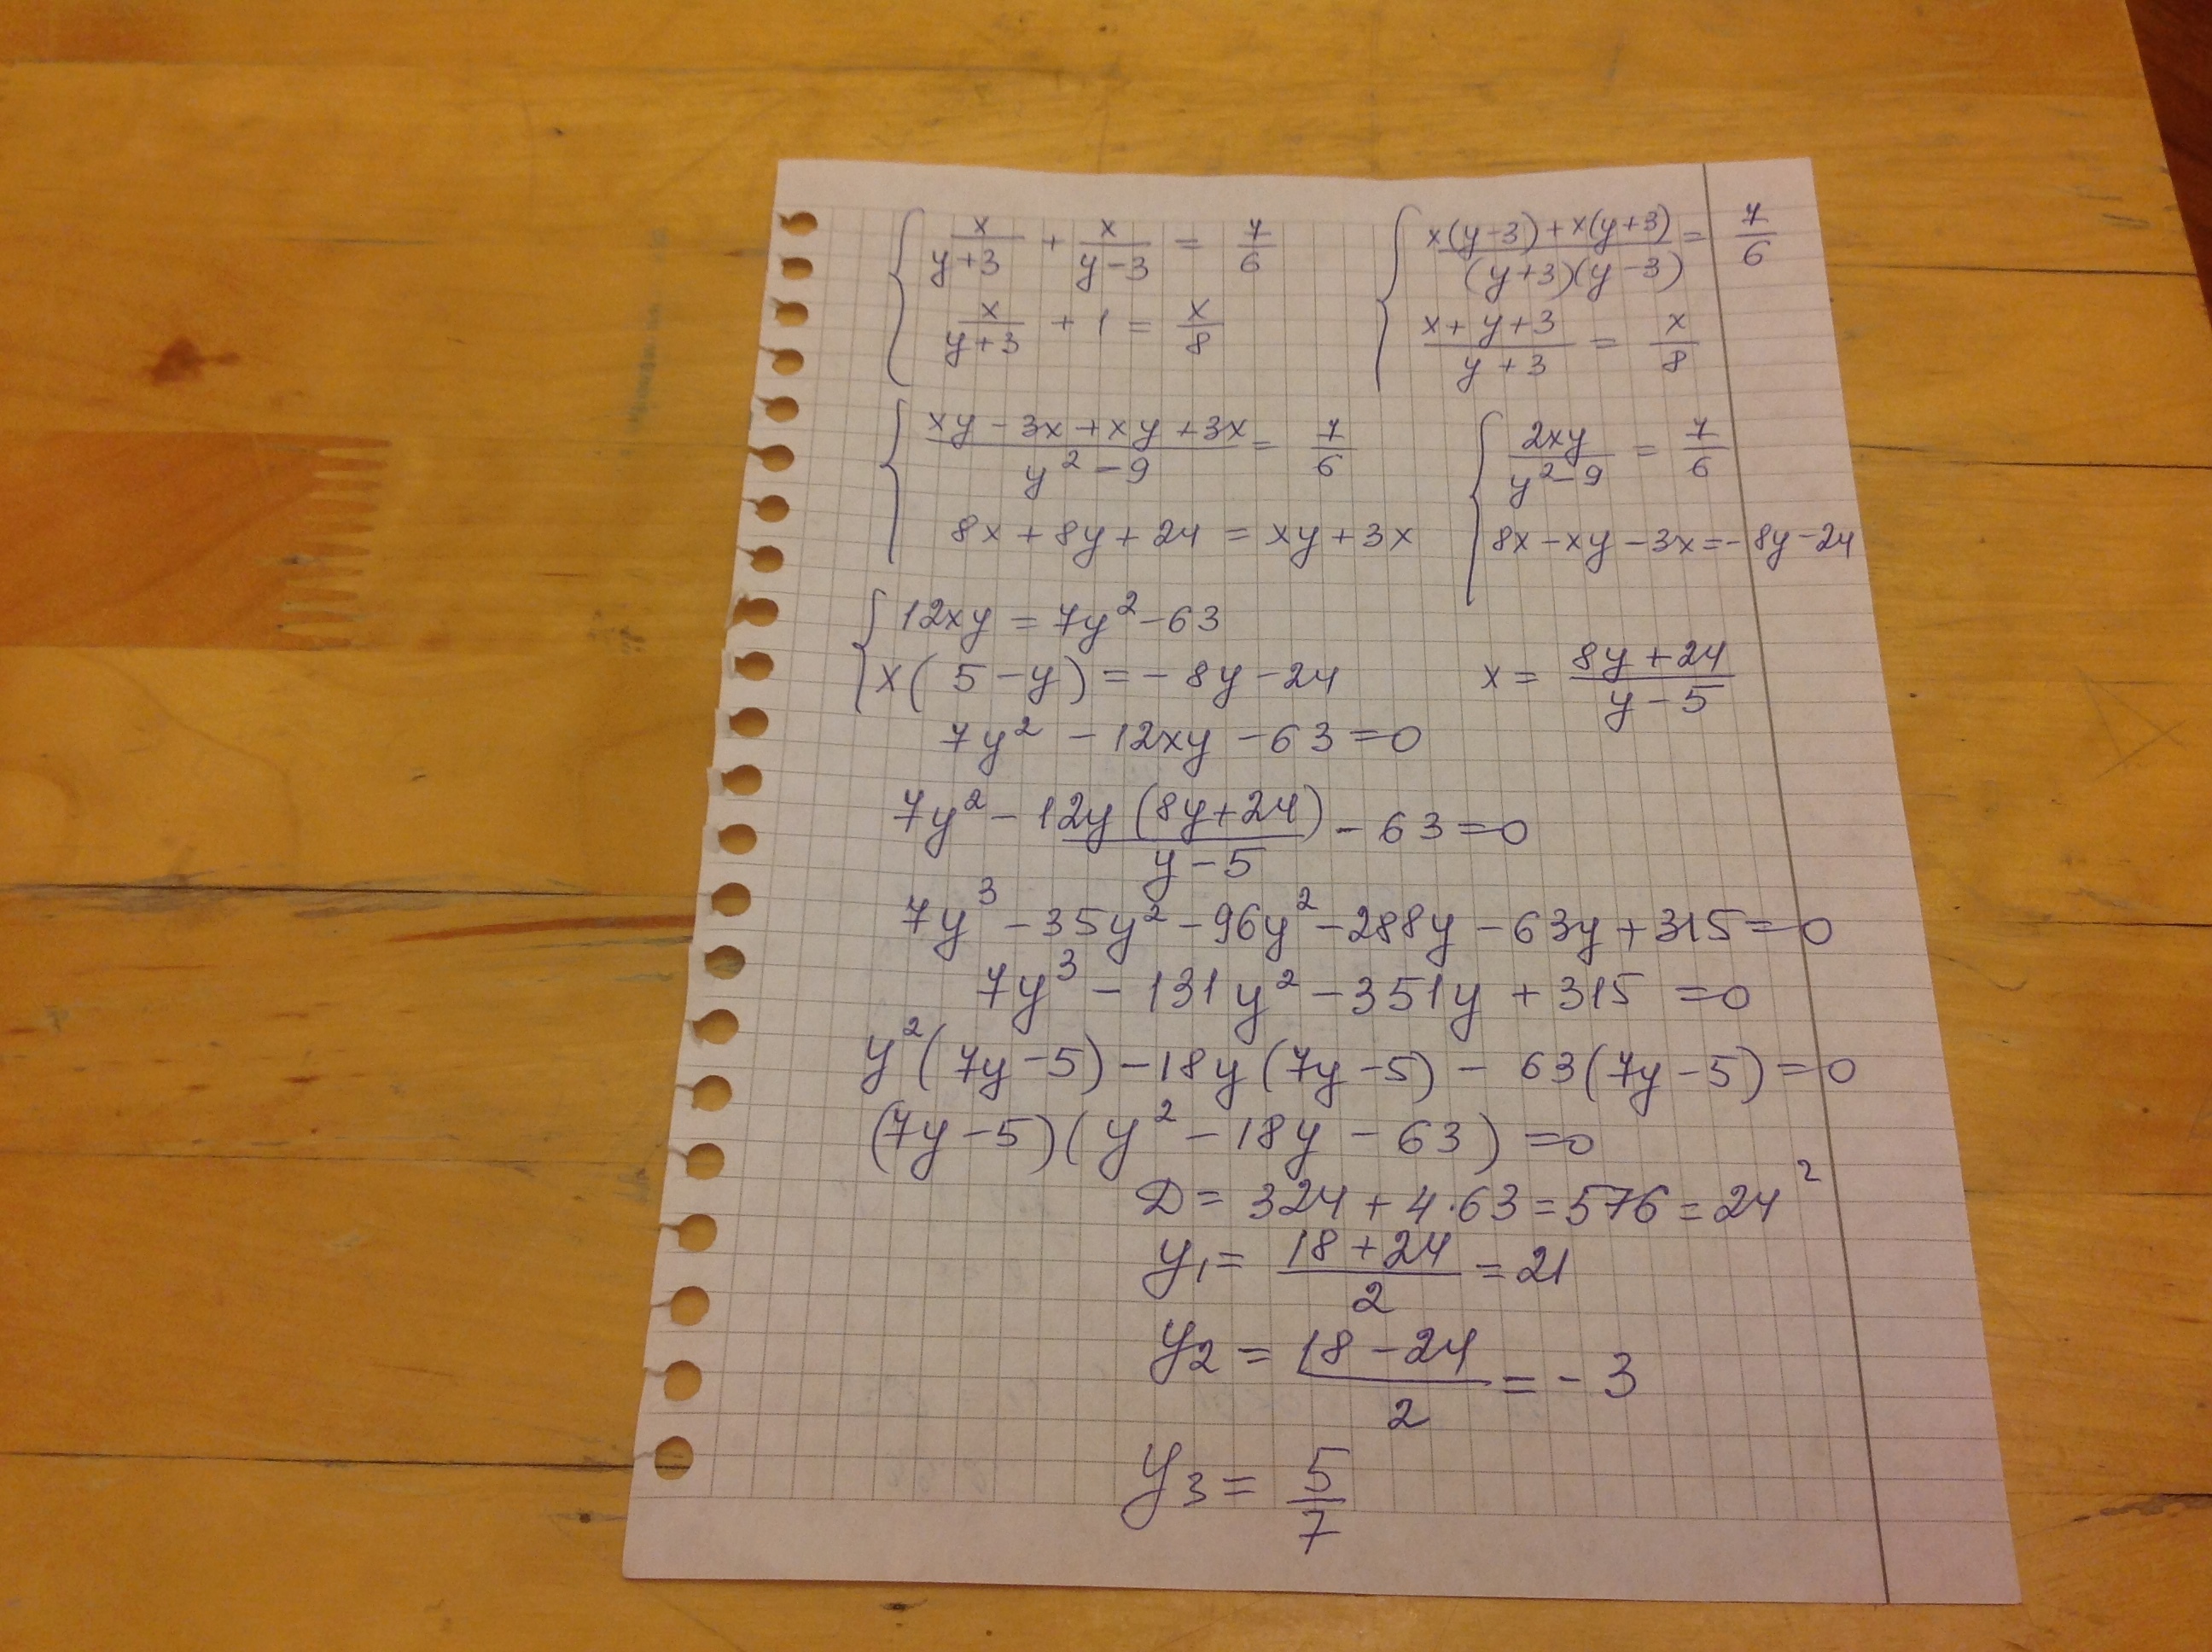 { x/(y+3) + x/(y-3) = 7/6
x/(y+3) + 1 = x/8
{ (x(y-3)+x(y+3))/((y+3)(y-3)) = 7/6
(x+y+3)/(y+3) = x/8
{ (xy-3x+xy+3x)/(y²-9) = 7/6
8x+8y+24 = xy+3x
{ 2xy/(y²-9) = 7/6
8x-xy-3x=-8y-24
{ 12xy = 7y²-63
x(5-y) = -8y-24
x = (8y+24)/(y-5)
7y² - 12xy - 63 = 0
7y² - 12y(8y+24)/(y-5) - 63 = 0
7y³ - 35y² - 96y² - 288y - 63y + 315 = 0
7y³ - 131y² - 351y + 315 = 0
y²(7y-5) - 18y(7y-5) - 63(7y-5) = 0
(7y-5)(y² - 18y - 63) = 0
D = 324 + 4·63 = 576 = 24²
y₁ = (18+24)/2 = 21
y₂ = (18-24)/2 = -3
y₃ = 5/7